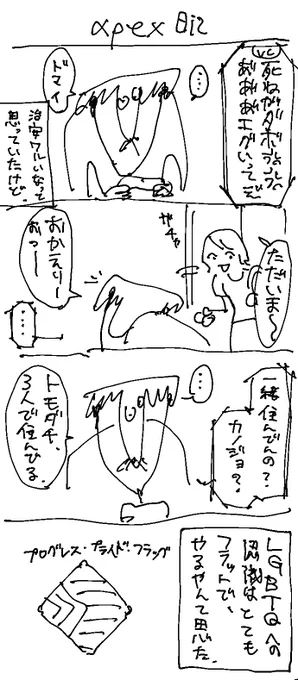 apex 日記
VC
死ねがダボがよ
ああああエグいってぇ
…
ドマイ
治安ワルいなって
思っていたけど、
ただいま〜
ガチャ
おかえりー
おっー
…
一緒住んでんの？
カノジョ？
…
トモダチ、
3人で住んでる。
LGBTQへの
認識はとても
フラットで、
やるやんて思た。
プログレス・プライド・フラッグ